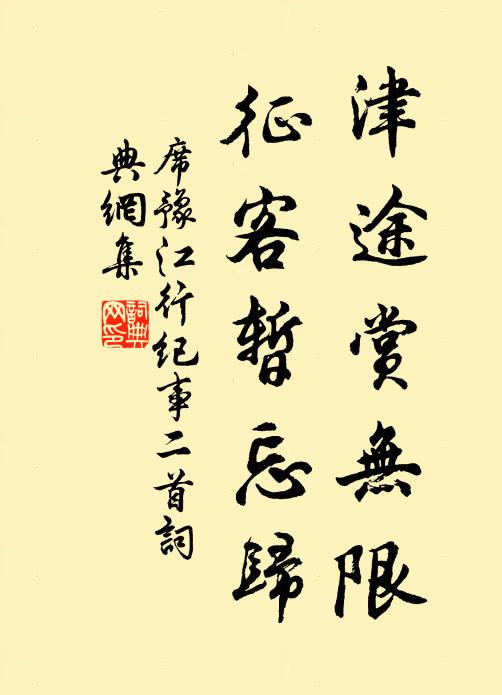 津途賞無限
征客暫忘歸
席豫江行紀事二首詞
典網集
詞典網印